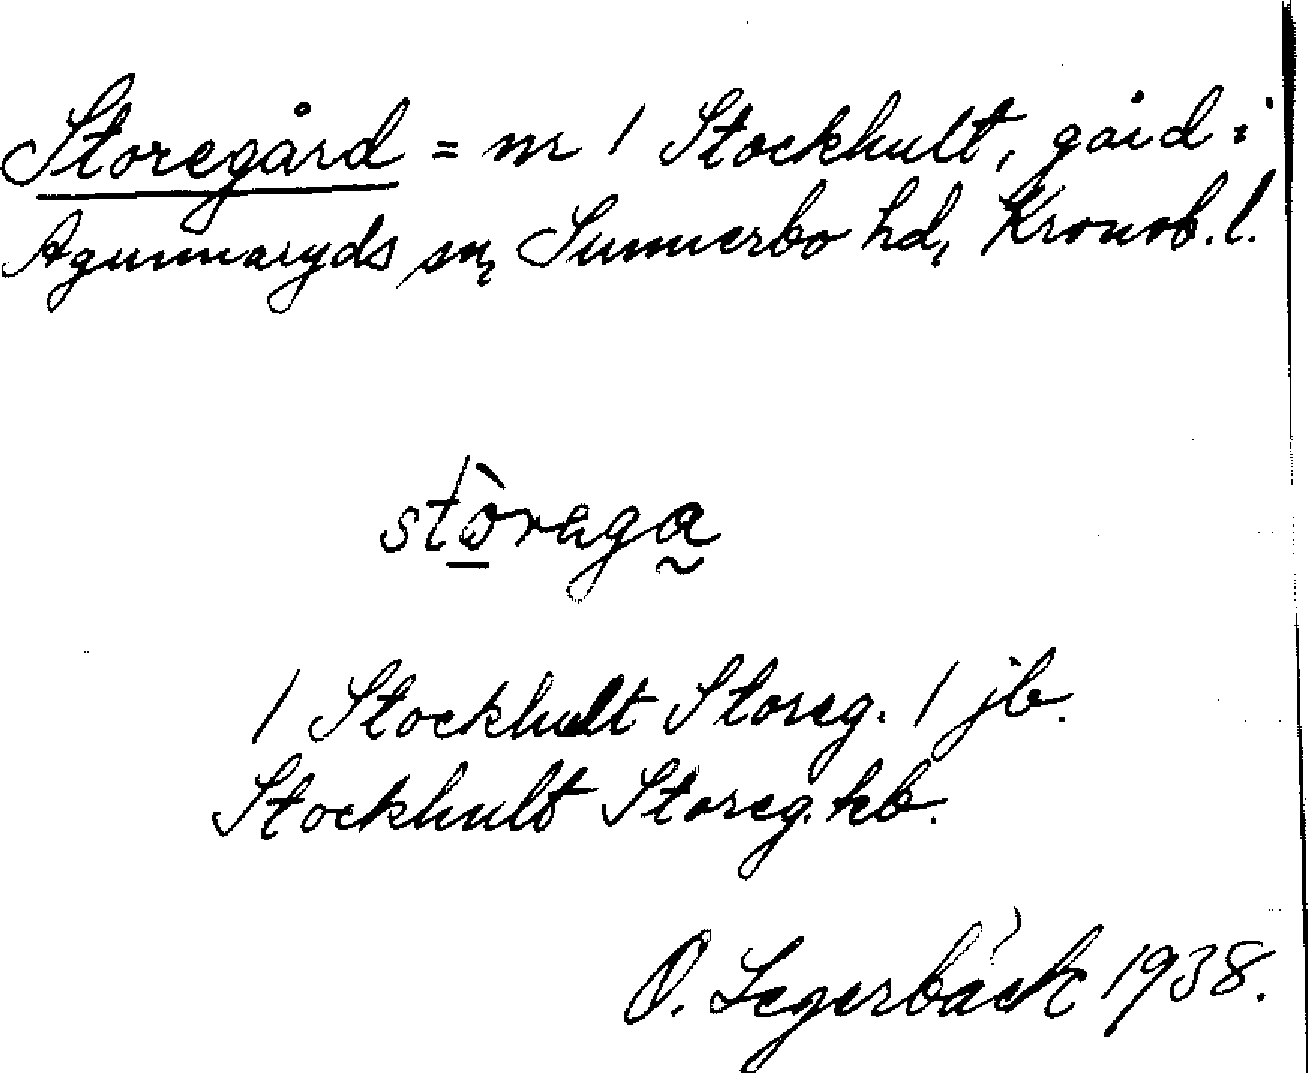 Storegård = nr 1 Stockhult, gård i
Agunnaryds sn, Sunnerbo hd, Kronob. l.
stòraga
1 Stockhult Storeg. 1 jb.
Stockhult Storeg. kb.
O. Segerbäck 1938.